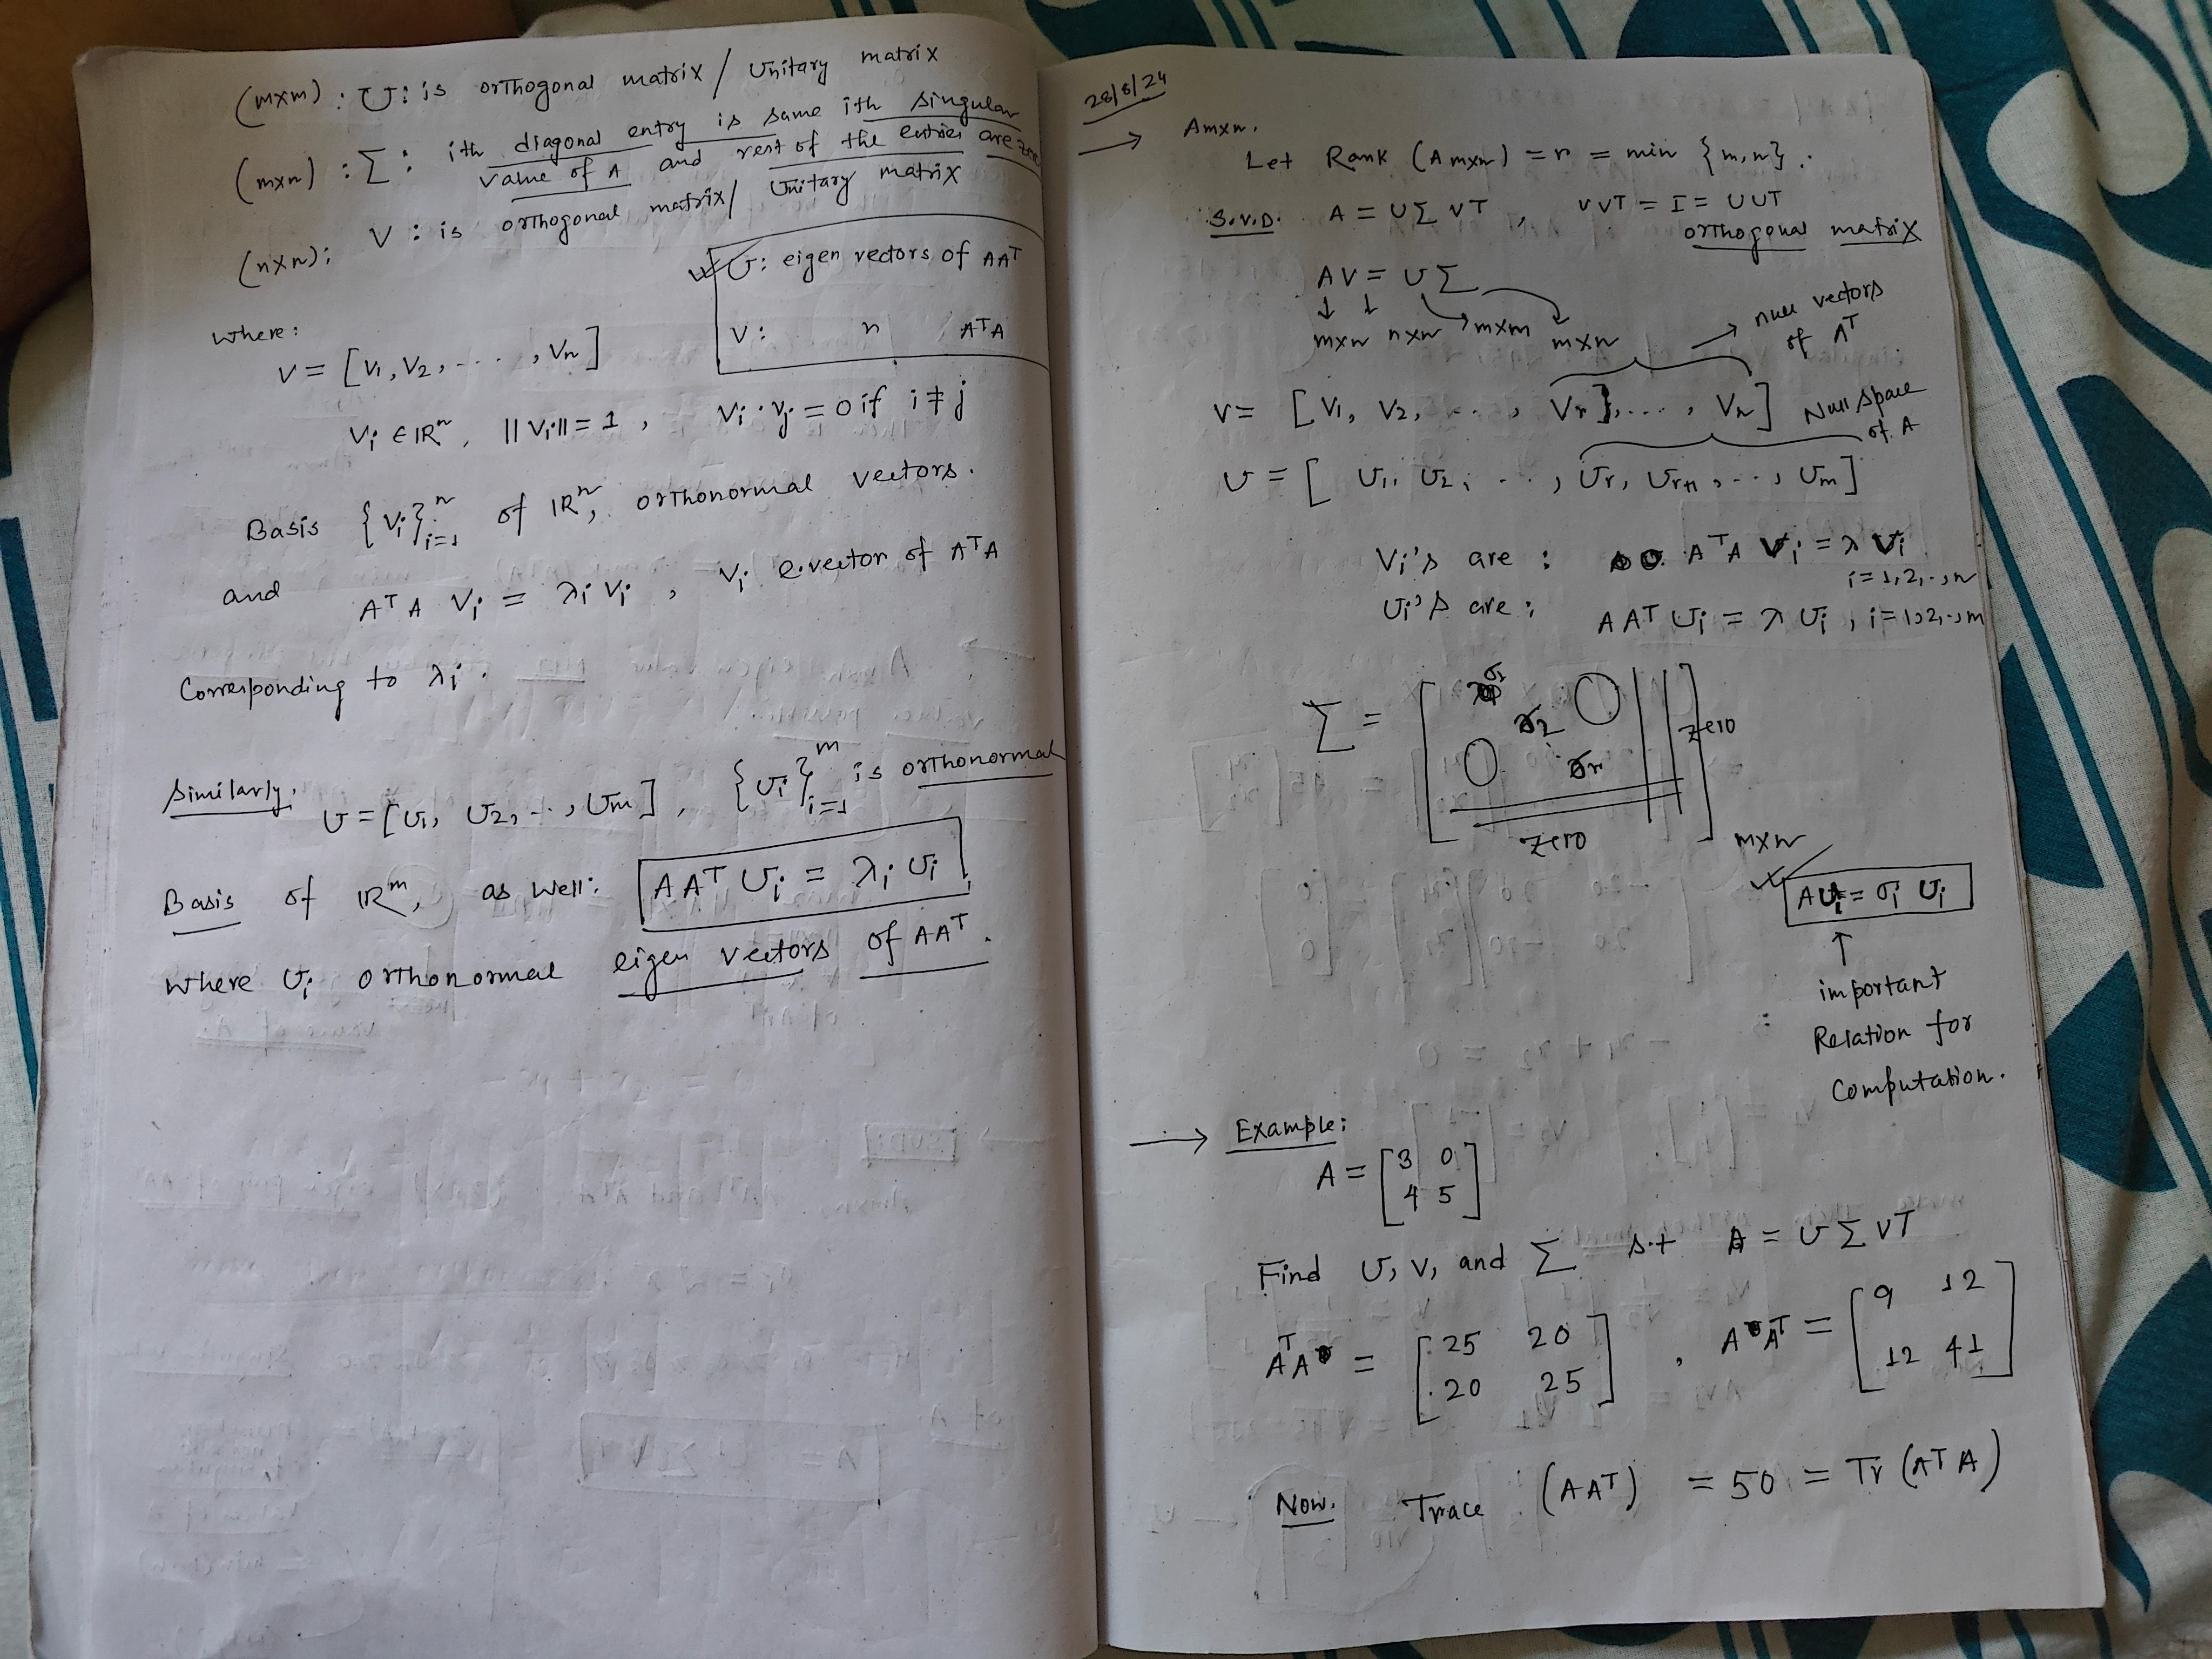 (m×m) : U : is orthogonal matrix / Unitary matrix
(m×n) : Σ : ith diagonal entry is same ith singular
value of A and rest of the entries are zero
(n×n) : V : is orthogonal matrix / Unitary matrix
U : eigen vectors of AAᵀ
V : " AᵀA
where :
V = [V₁, V₂, ..., Vₙ]
Vᵢ ∈ ℝⁿ, ||Vᵢ|| = 1, Vᵢ · Vⱼ = 0 if i ≠ j
Basis {Vᵢ}ⁿᵢ₌₁ of ℝⁿ, orthonormal vectors.
and AᵀA Vᵢ = λᵢ Vᵢ, Vᵢ e.vector of AᵀA
Corresponding to λᵢ.
Similarly, U = [U₁, U₂, .., Uₘ], {Uᵢ}ᵐᵢ₌₁ is orthonormal
Basis of ℝᵐ, as well : AAᵀ Uᵢ = λᵢ Uᵢ,
where Uᵢ orthonormal eigen vectors of AAᵀ.
28/8/24
→ Aₘₓₙ.
Let Rank (Aₘₓₙ) = r = min {m,n}.
S.V.D. A = UΣVᵀ, VVᵀ = I = UUᵀ
orthogonal matrix
AV = UΣ
↓ ↓
m×n n×n → m×m m×n
→ null vectors
of Aᵀ
V = [V₁, V₂, ..., Vr], ..., Vₙ] Null space
of A
U = [U₁, U₂, ..., Ur, Ur+1, ..., Um]
Vᵢ's are : AᵀA Vᵢ = λ Vᵢ
i = 1,2,..,n
Uᵢ's are : AAᵀ Uᵢ = λ Uᵢ, i = 1,2,..,m
Σ = [ σ₁ 0
σ₂ zero
0 σr ]
zero m×n
AUᵢ = σᵢ Uᵢ
↑
important
Relation for
Computation.
→ Example :
A = [3 0
4 5]
Find U, V, and Σ s.t A = UΣVᵀ
AᵀA = [25 20
20 25], AAᵀ = [9 12
12 41]
Now. Trace (AAᵀ) = 50 = Tr (AᵀA)